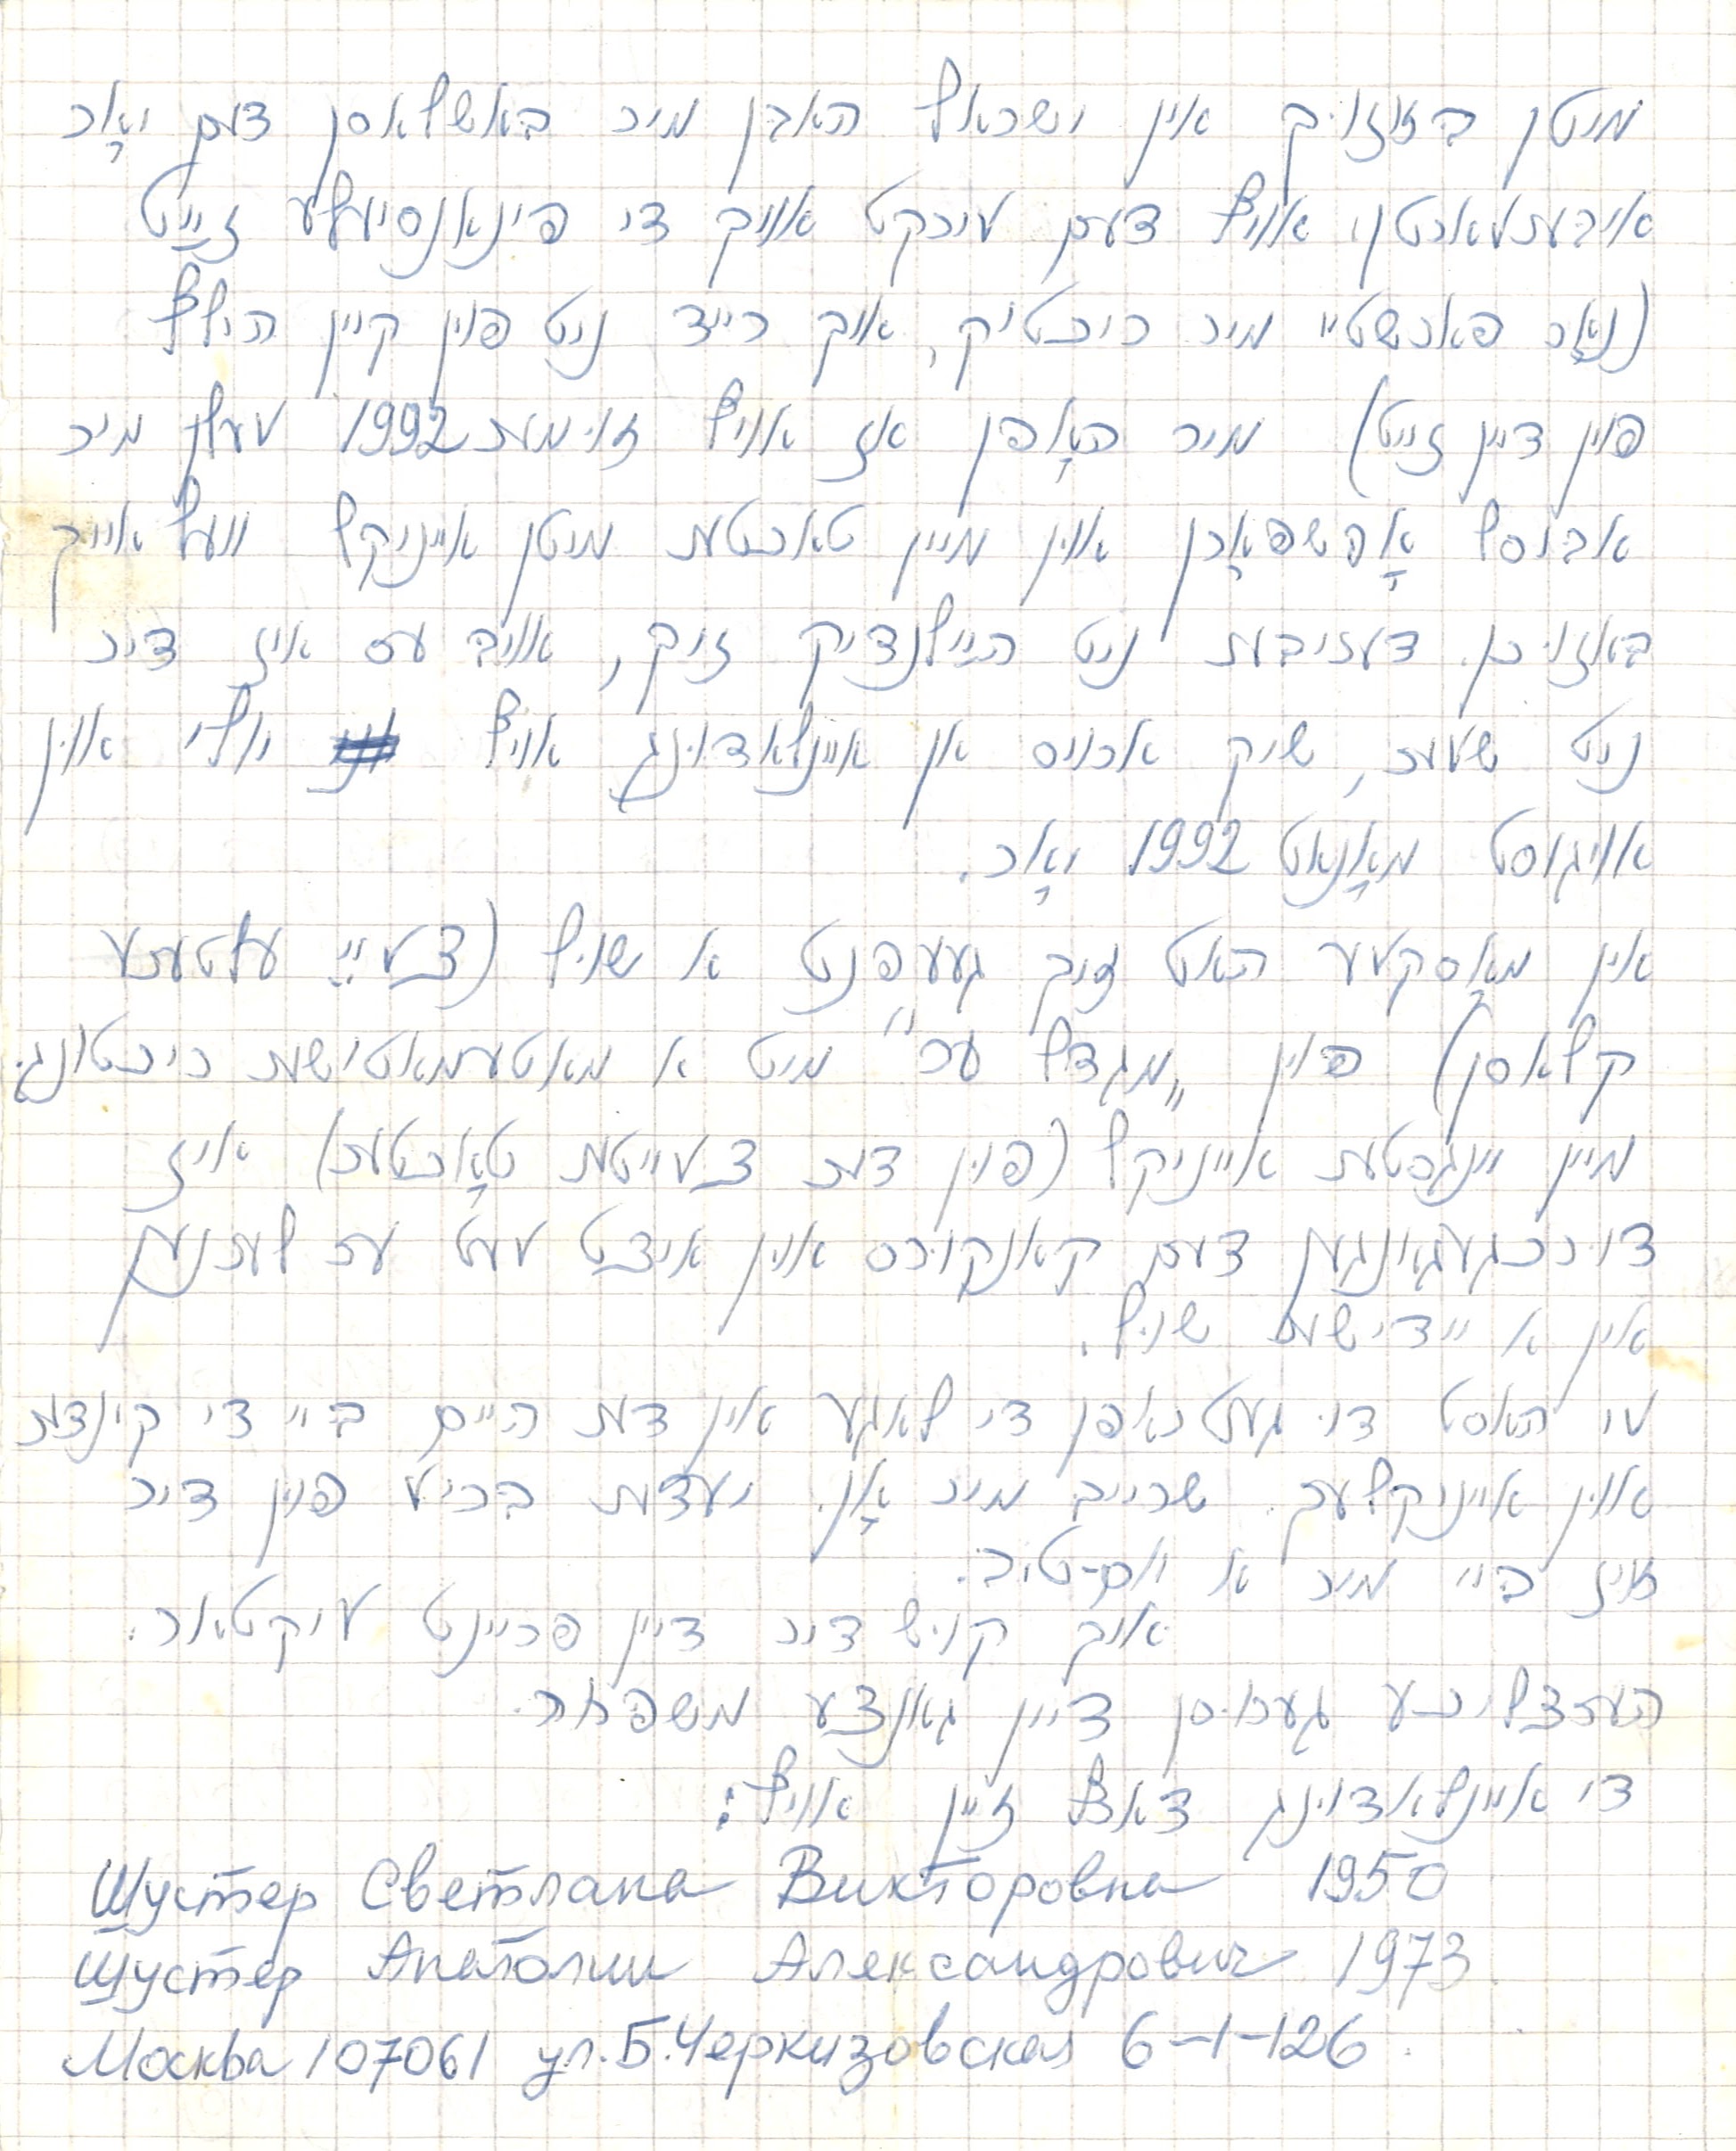 מיטן באזוך אין ישראל האבן מיר באשלאסן דעם יאָר
איבערווארטן, אויף דעם ווירקט אויך די פינאנסיעלע זייַט
(נאָר פארשטיי מיר ריכטיק, איך רייד ניט פון קיין הילף
פון דיין זייט) מיר האָפן אז אויף זומער 1992 וועלן מיר
אביסל אָפּשפּאָרן און מיין טאכטער מיטן אייניקל וועל אייך
באזוכן. דעריבער ניט הײַלנדיק זיך, אויב עס איז דיר
ניט שווער, שיק ארויס אן איינלאדונג אויף יולי און
אויגוסט מאָנאט 1992 יאָר.
אין מאָסקווע האט זיך געעפנט א שול (צוויי עלטערע
קלאסן) פון „מגדל עור" מיט א מאטעמאטישער ריכטונג.
מיין יינגסטער אייניקל (פון דער צווייטער טאָכטער) איז
דורכגעגאנגען דעם קאנקורס און איצט וועט ער לערנען
אין א יידישער שול.
ווי האסט דו געטראפן די לאגע אין דער היים ביי די קינדער
און אייניקלעך. שרייב מיר אָן. יעדער בריוו פון דיר
איז ביי מיר א יום-טוב.
איך קוש דיך דיין פריינט וויקטאר.
הערצליכע גערוסן דיין גאנצע משפחה.
די איינלאדונג דארף זיין אויף:
Шустер Светлана Викторовна 1950
Шустер Анатолий Александрович 1973
Москва 107061 ул. Б. Черкизовская 6-1-126.